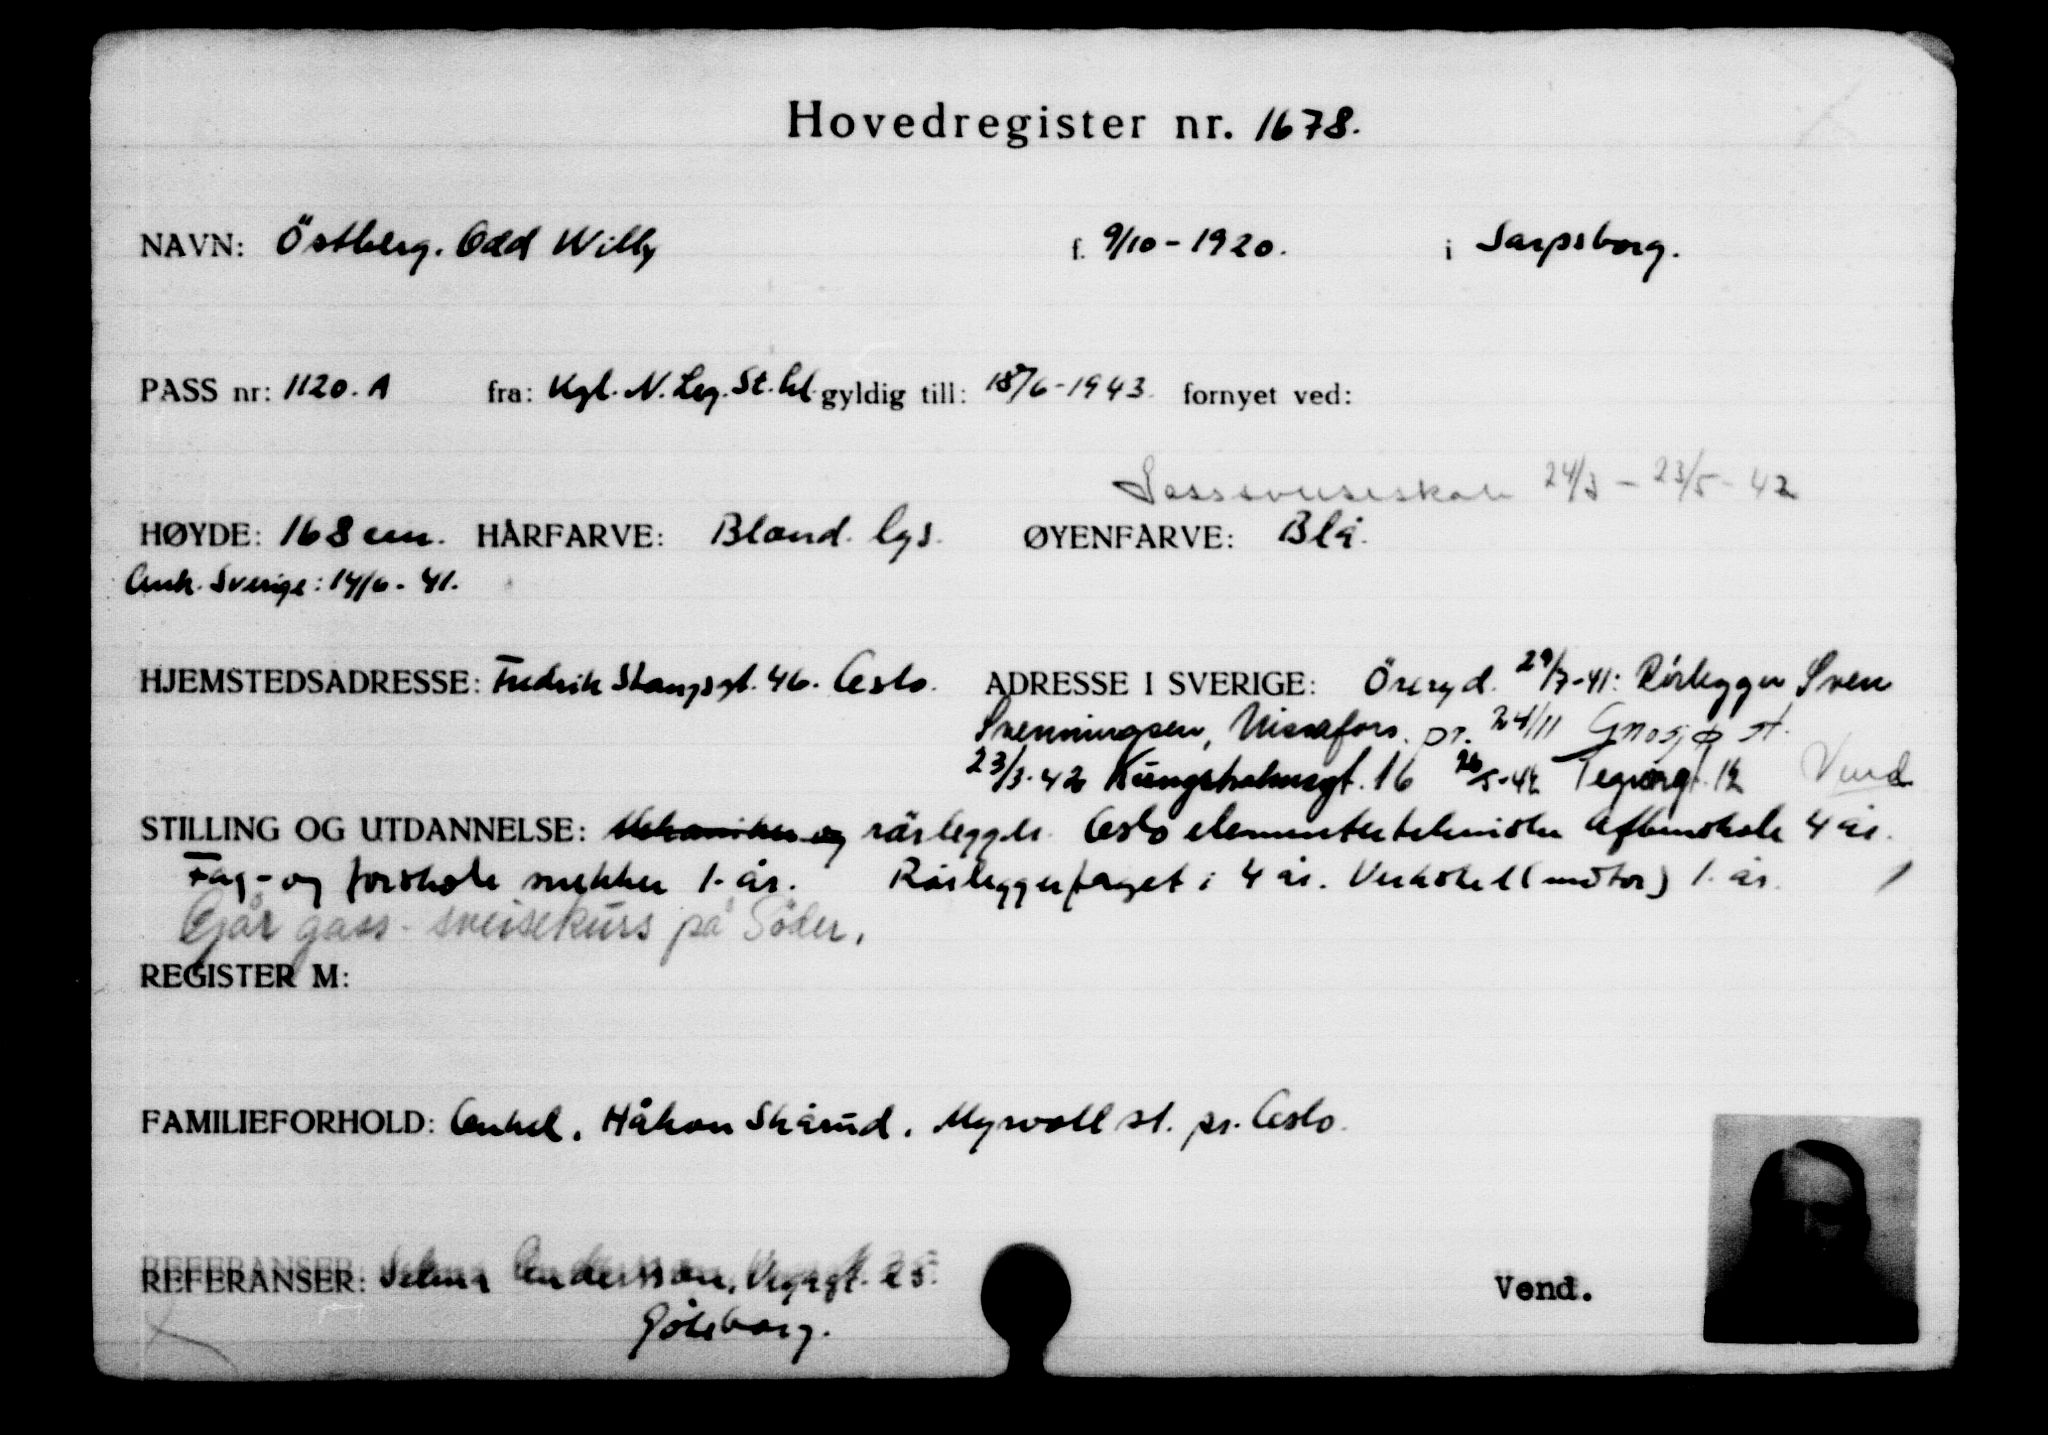 Hovedregister nr. 1678.
NAVN: Östberg. Odd Willy f. 9/10-1920. i Sarpsborg.
PASS nr: 1120. A fra: Kgl. N. Leg. St. hl. gyldig till: 18/6-1943. fornyet ved:
24/3 - 23/5 - 42
HØYDE: 168 cm. HÅRFARVE: Blond. lys. ØYENFARVE: Blå.
Ank. Sverige: 14/6- 41.
HJEMSTEDSADRESSE: Fredrik Stangsgt. 46. Oslo. ADRESSE I SVERIGE: Öreryd. 29/7-41: Rörlegger Sven
Svenningsen, Nissafors. pr. 24/11 Gnosjø st.
23/3-42 Kungsholmsgt. 16 26/5-42 Tegnergt. 12 Vend
STILLING OG UTDANNELSE: Mekaniker og rörlegger. Oslo elementærtekniske Aftenskole 4 år.
Fag- og forskole snekker 1. år. Rörleggerfaget i 4 år. Verksted (motor) 1. år.
Går gass- sveisekurs på Söder.
REGISTER M:
FAMILIEFORHOLD: Onkel. Håkon Skårud. Myrvoll st. pr. Oslo.
REFERANSER: Selma Andersson, Vegagt. 25.
Göteborg.
Vend.